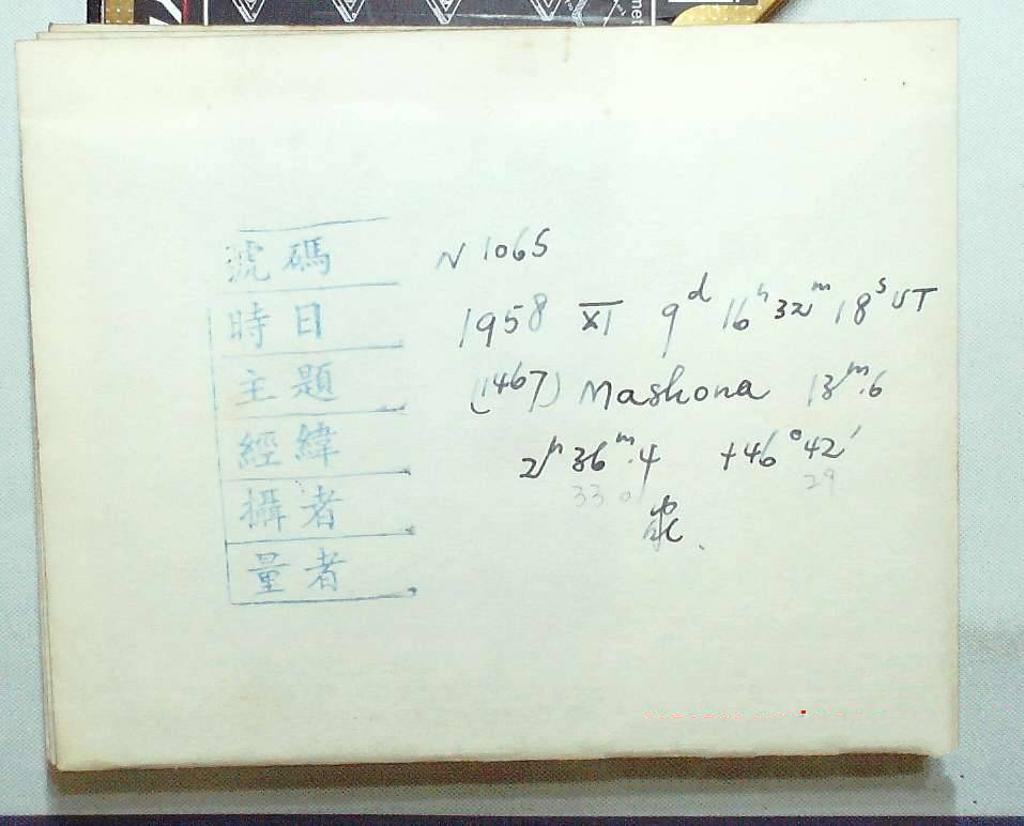 號碼 N 1065
時日 1958 XI 9ᵈ 16ʰ 32ᵐ 18ˢ UT
主題 (1467) Mashona 13ᵐ.6
經緯 2ʰ 36ᵐ.4 +46°42′
33 0 29
攝者
量者